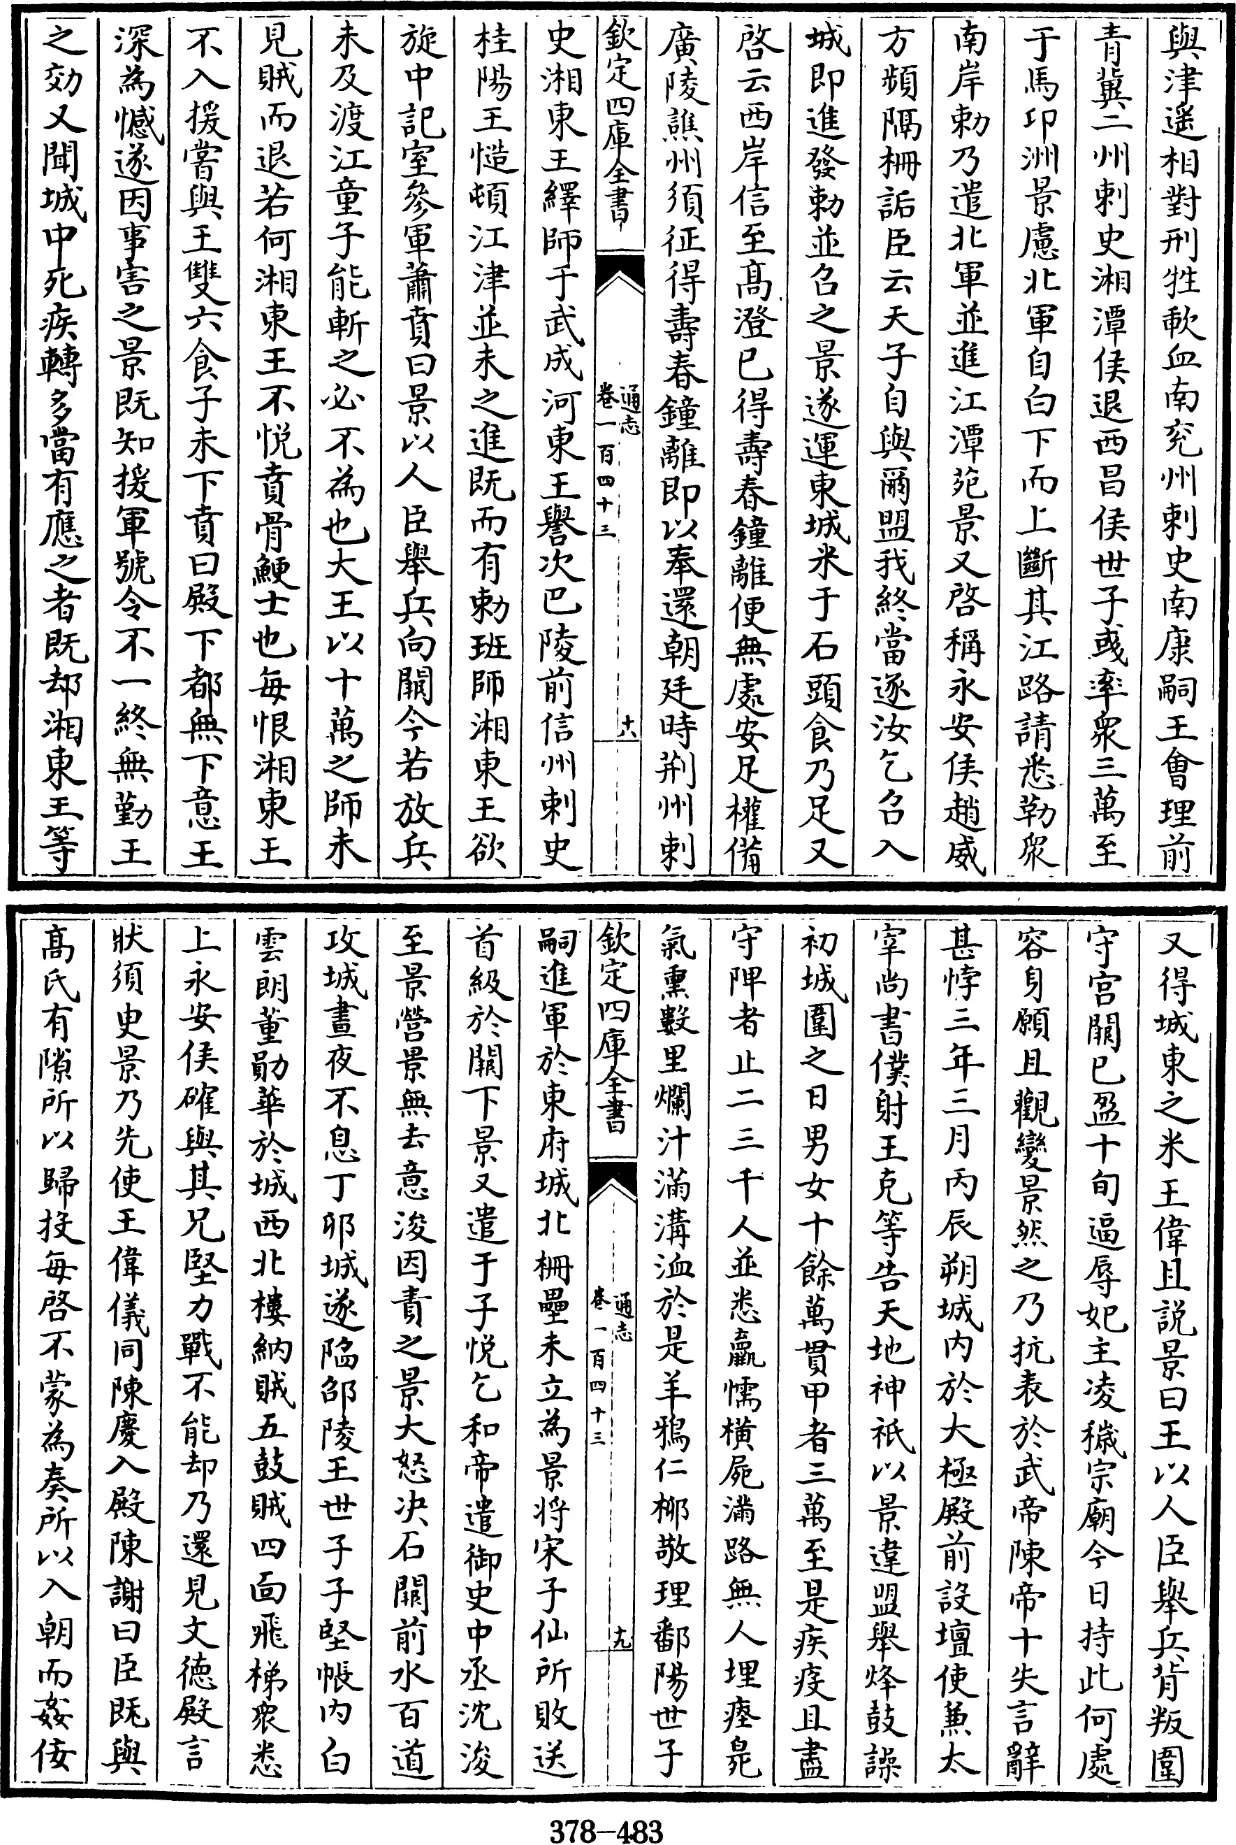 與津遥相對刑牲歃血南兖州刺史南康嗣王㑹理前
青冀二州刺史湘潭侯退西昌侯世子彧率衆三萬至
于馬卬洲景慮北軍自白下而上斷其江路請悉勒衆
南岸勅乃遣北軍並進江潭苑景又啓稱永安侯趙威
方頻隔柵詬臣云天子自與爾盟我終當逐汝乞召入
城即進發勅並召之景遂運東城米于石頭食乃足又
啓云西岸信至髙澄已得壽春鐘離便無處安足權借
廣陵譙州須征得壽春鐘離即以奉還朝廷時荆州刺
欽定四庫全書
通志
卷一百四十三
十八
史湘東王繹師于武成河東王譽次巴陵前信州刺史
桂陽王慥頓江津並未之進既而有勅班師湘東王欲
旋中記室參軍蕭賁曰景以人臣舉兵向闕今若放兵
未及渡江童子能斬之必不為也大王以十萬之師未
見賊而退若何湘東王不悦賁骨鯁士也每恨湘東王
不入援嘗與王雙六食子未下賁曰殿下都無下意王
深為憾遂因事害之景既知援軍號令不一終無勤王
之効又聞城中死疾轉多當有應之者既却湘東王等
又得城東之米王偉且説景曰王以人臣舉兵背叛圍
守宫闕已盈十旬逼辱妃主凌穢宗廟今日持此何處
容身願且觀變景然之乃抗表於武帝陳帝十失言辭
甚悖三年三月丙辰朔城内於大極殿前設壇使兼太
宰尚書僕射王克等告天地神祇以景違盟舉烽鼓譟
初城圍之日男女十餘萬貫甲者三萬至是疾疫且盡
守陴者止二三千人並悉羸懦横屍滿路無人埋瘞臭
氣熏數里爛汁滿溝洫於是羊鴉仁栁敬理鄱陽世子
欽定四庫全書
通志
卷一百四十三
十九
嗣進軍於東府城北柵壘未立為景将宋子仙所敗送
首級於闕下景又遣于子悦乞和帝遣御史中丞沈浚
至景營景無去意浚因責之景大怒决石闕前水百道
攻城晝夜不息丁夘城遂陷邵陵王世子子堅帳内白
雲朗董勛華於城西北樓納賊五鼓賊四面飛梯衆悉
上永安侯確與其兄堅力戰不能却乃還見文德殿言
狀須史景乃先使王偉儀同陳慶入殿陳謝曰臣既與
髙氏有隙所以歸投每啓不蒙為奏所以入朝而姦佞
378-483